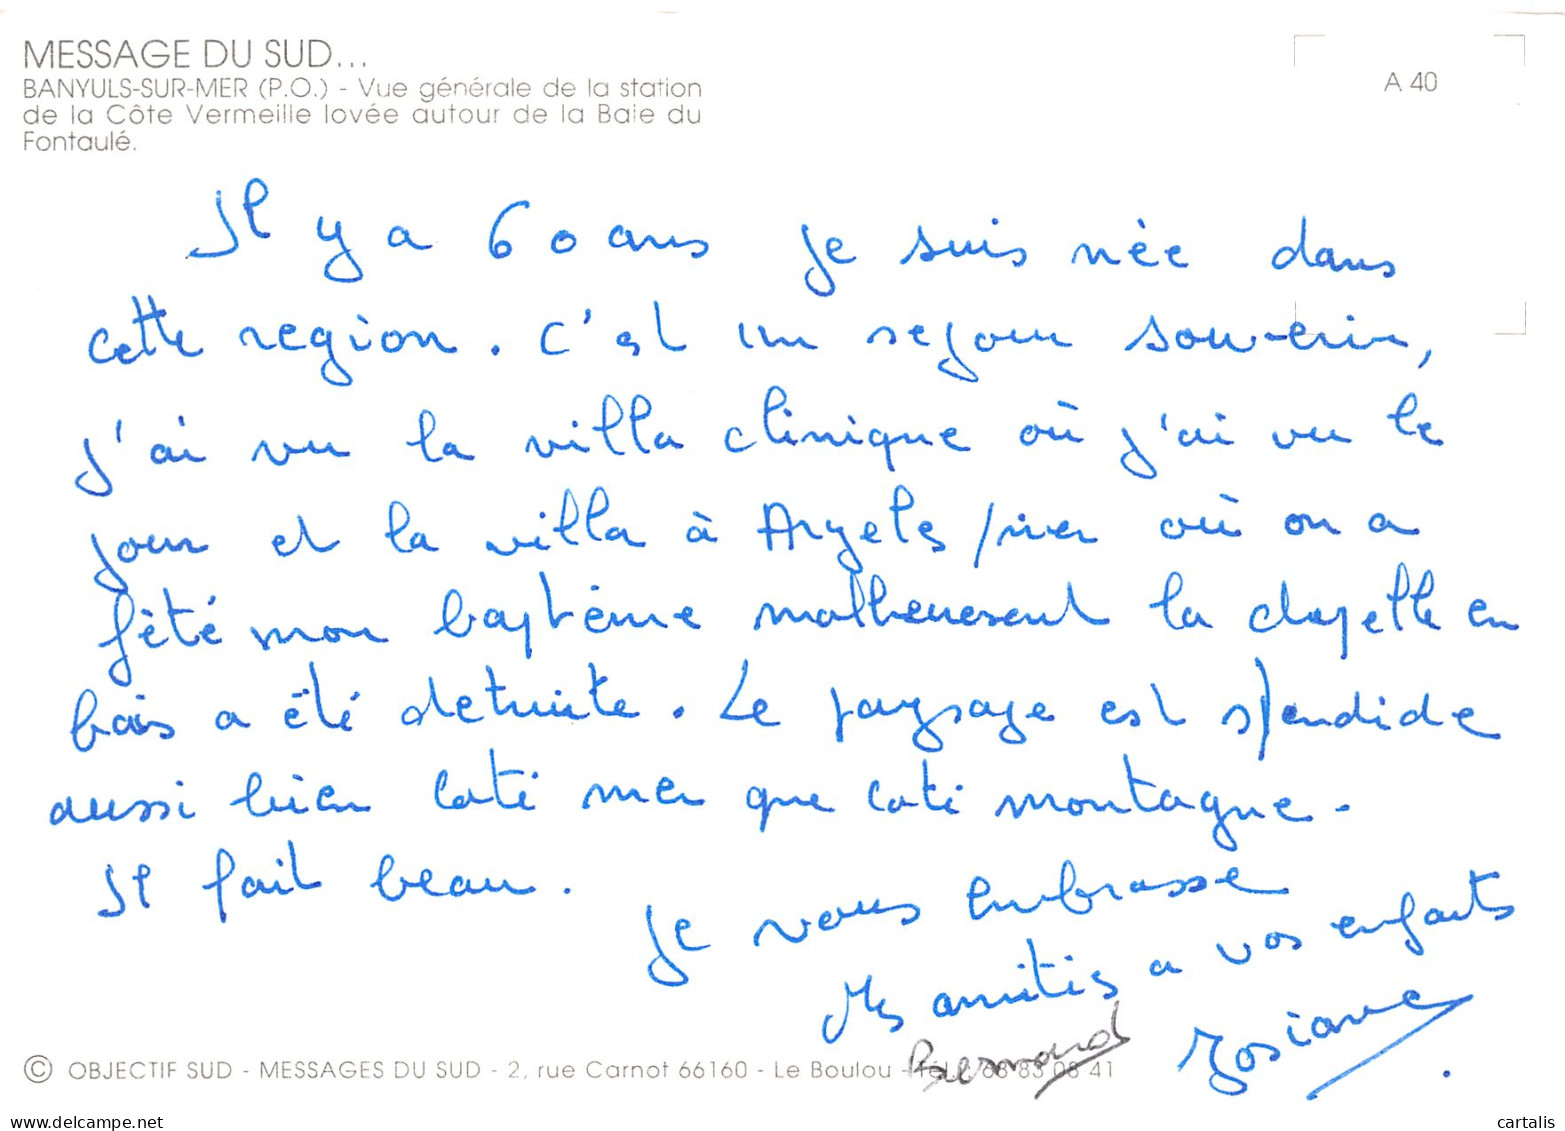 MESSAGE DU SUD...
BANYULS-SUR-MER (P.O.) - Vue générale de la station
de la Côte Vermeille lovée autour de la Baie du
Fontaulé.
A 40
Il y a 60 ans je suis née dans
cette region. C'est un sejour souvenir,
j'ai vu la villa clinique où j'ai vu le
jour et la villa à Argeles/mer où on a
fêté mon baptème malheuresent la chapelle en
bois a été detruite. Le paysage est splendide
aussi bien coté mer que coté montagne.
Il fait beau.
Je vous embrasse
Mes amitiés a vos enfants
Bernard Josiane
© OBJECTIF SUD - MESSAGES DU SUD - 2, rue Carnot 66160 - Le Boulou - Tél. 68 83 08 41
cartalis
www.delcampe.net